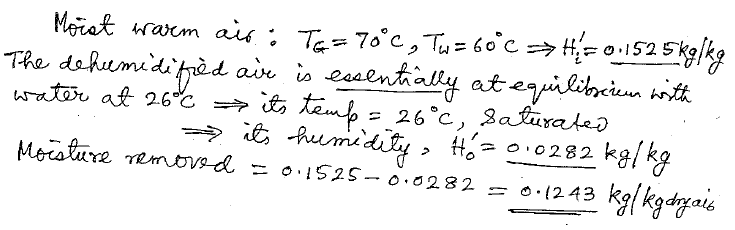 Moist warm air : T_G = 70°C, T_W = 60°C ⇒ H_i' = 0.1525 kg/kg
The dehumidified air is essentially at equilibrium with
water at 26°C ⇒ its temp = 26°C, saturated
⇒ its humidity, H_o' = 0.0282 kg/kg
Moisture removed = 0.1525 - 0.0282 = 0.1243 kg/kg dry air